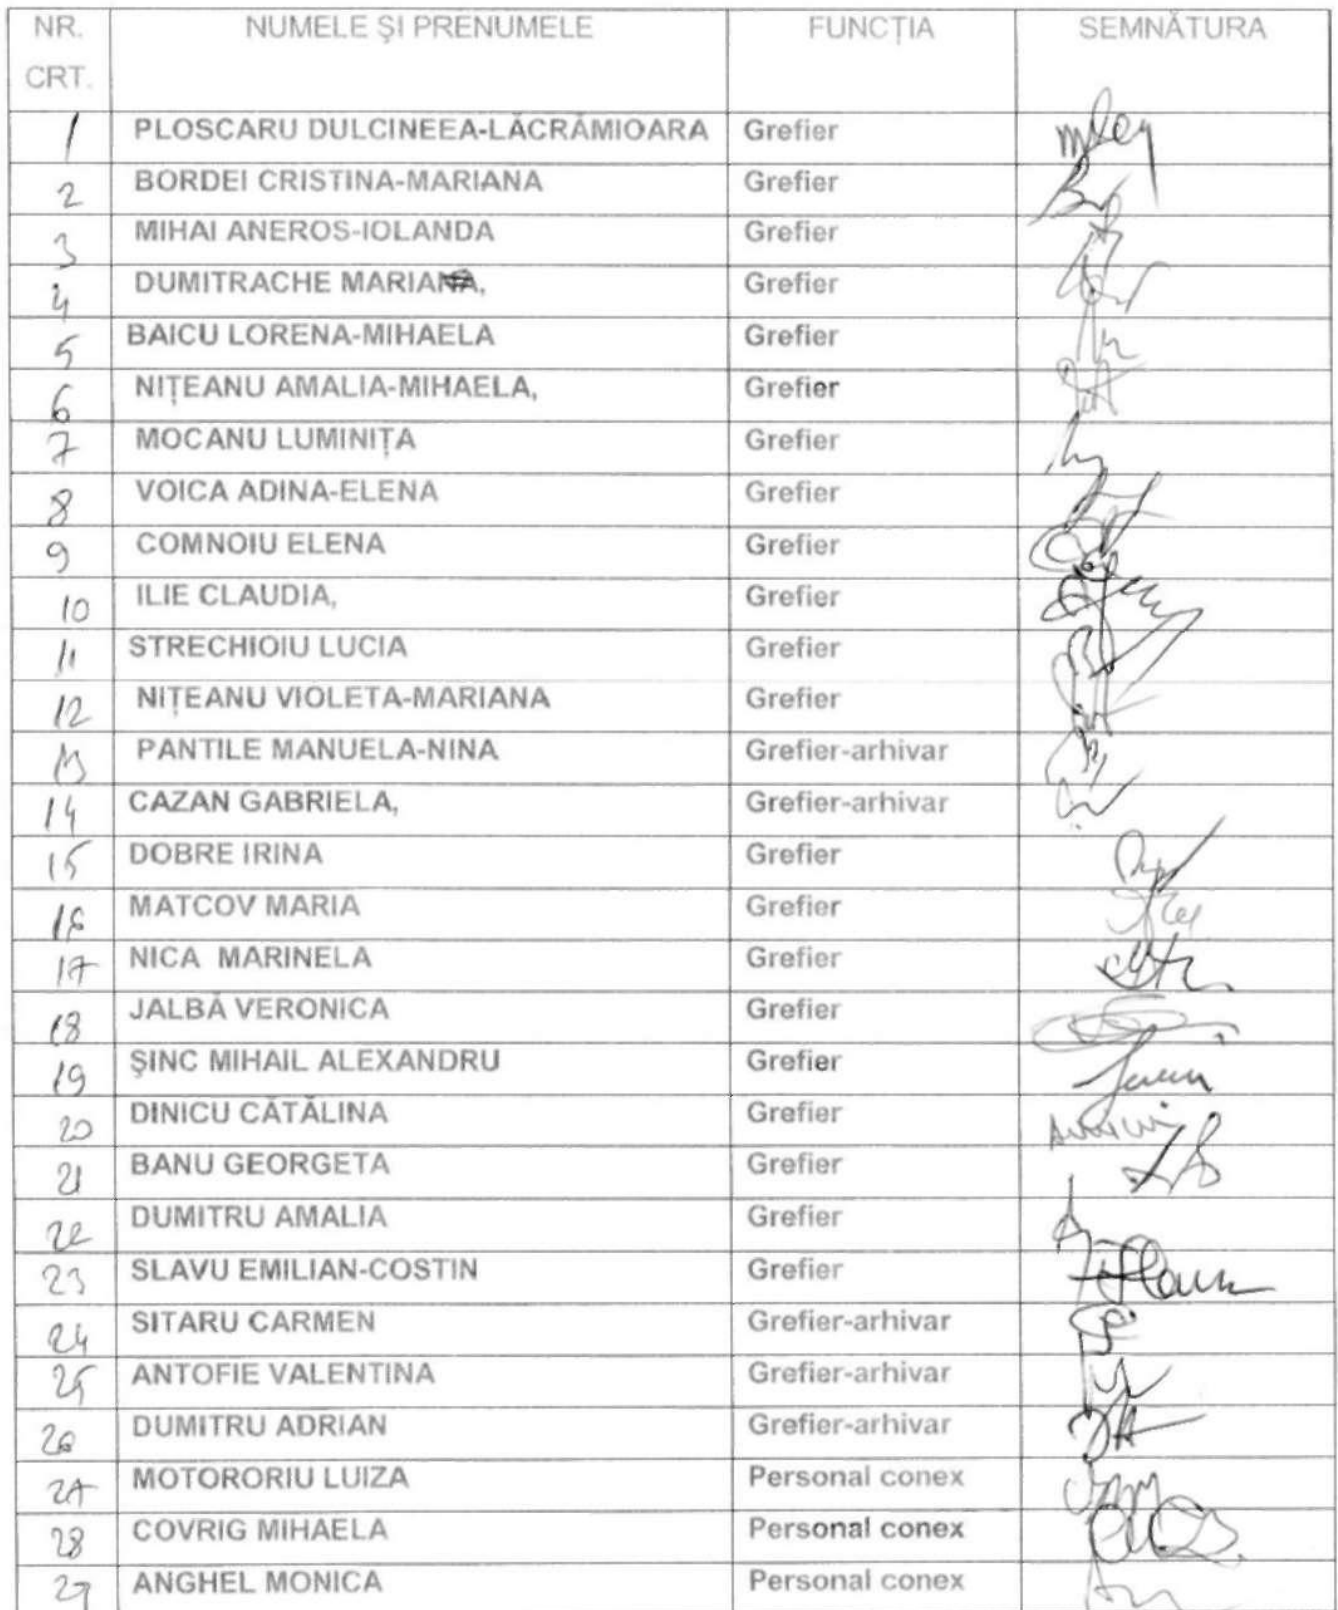 NR. CRT. NUMELE ȘI PRENUMELE FUNCȚIA SEMNĂTURA
1 PLOSCARU DULCINEEA-LĂCRĂMIOARA Grefier
2 BORDEI CRISTINA-MARIANA Grefier
3 MIHAI ANEROS-IOLANDA Grefier
4 DUMITRACHE MARIANA, Grefier
5 BAICU LORENA-MIHAELA Grefier
6 NIȚEANU AMALIA-MIHAELA, Grefier
7 MOCANU LUMINIȚA Grefier
8 VOICA ADINA-ELENA Grefier
9 COMNOIU ELENA Grefier
10 ILIE CLAUDIA, Grefier
11 STRECHIOIU LUCIA Grefier
12 NIȚEANU VIOLETA-MARIANA Grefier
13 PANTILE MANUELA-NINA Grefier-arhivar
14 CAZAN GABRIELA, Grefier-arhivar
15 DOBRE IRINA Grefier
16 MATCOV MARIA Grefier
17 NICA MARINELA Grefier
18 JALBĂ VERONICA Grefier
19 ȘINC MIHAIL ALEXANDRU Grefier
20 DINICU CĂTĂLINA Grefier
21 BANU GEORGETA Grefier
22 DUMITRU AMALIA Grefier
23 SLAVU EMILIAN-COSTIN Grefier
24 SITARU CARMEN Grefier-arhivar
25 ANTOFIE VALENTINA Grefier-arhivar
26 DUMITRU ADRIAN Grefier-arhivar
27 MOTORORIU LUIZA Personal conex
28 COVRIG MIHAELA Personal conex
29 ANGHEL MONICA Personal conex